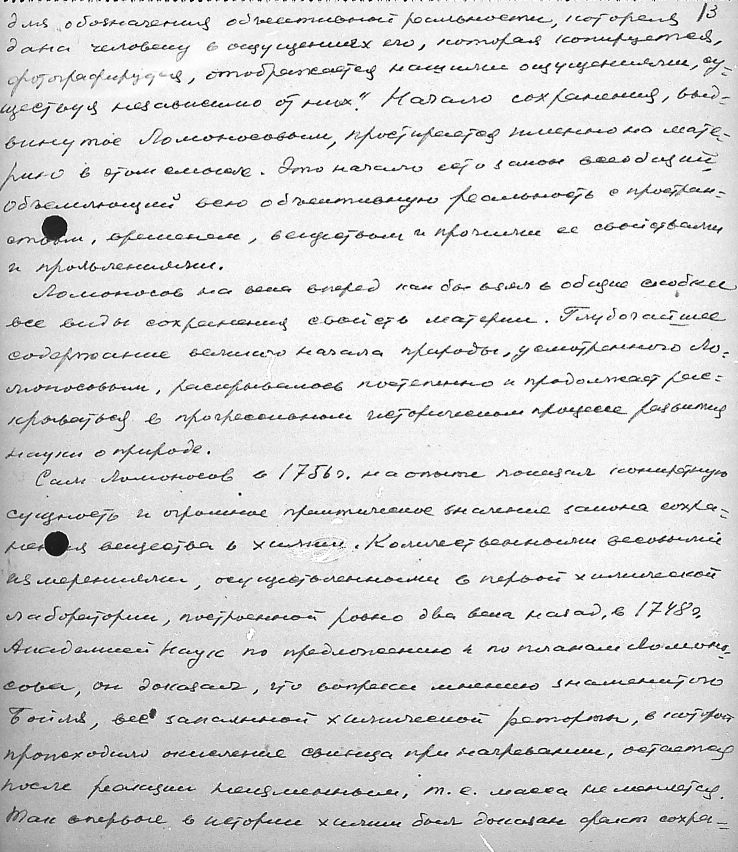 13
для обозначения объективной реальности, которая
дана человеку в ощущениях его, которая копируется,
фотографируется, отображается нашими ощущениями, су-
ществуя независимо от них". Начало сохранения, выд-
винутое Ломоносовым, простирается именно на мате-
рию в этом смысле. Это начало есть закон всеобщий,
объемлющий всю объективную реальность с простран-
ством, временем, веществом и прочими ее свойствами
и проявлениями.
Ломоносов на века вперед как бы взял в общие скобки
все виды сохранения свойств материи. Глубочайшее
содержание великого начала природы, усмотренного Ло-
моносовым, раскрывалось постепенно и продолжает рас-
крываться в прогрессивном историческом процессе развития
науки о природе.
Сам Ломоносов в 1756 г. на опыте показал конкретную
сущность и огромное практическое значение закона сохра-
нения вещества в химии. Количественными весовыми
измерениями, осуществленными в первой химической
лаборатории, построенной ровно два века назад, в 1748 г.
Академией Наук по предложению и по планам Ломоно-
сова, он доказал, что вопреки мнению знаменитого
Бойля, вес запаянной химической реторты, в которой
происходило окисление свинца при нагревании, остается
после реакции неизменным, т.е. масса не меняется.
Так впервые в истории химии был доказан факт сохра-